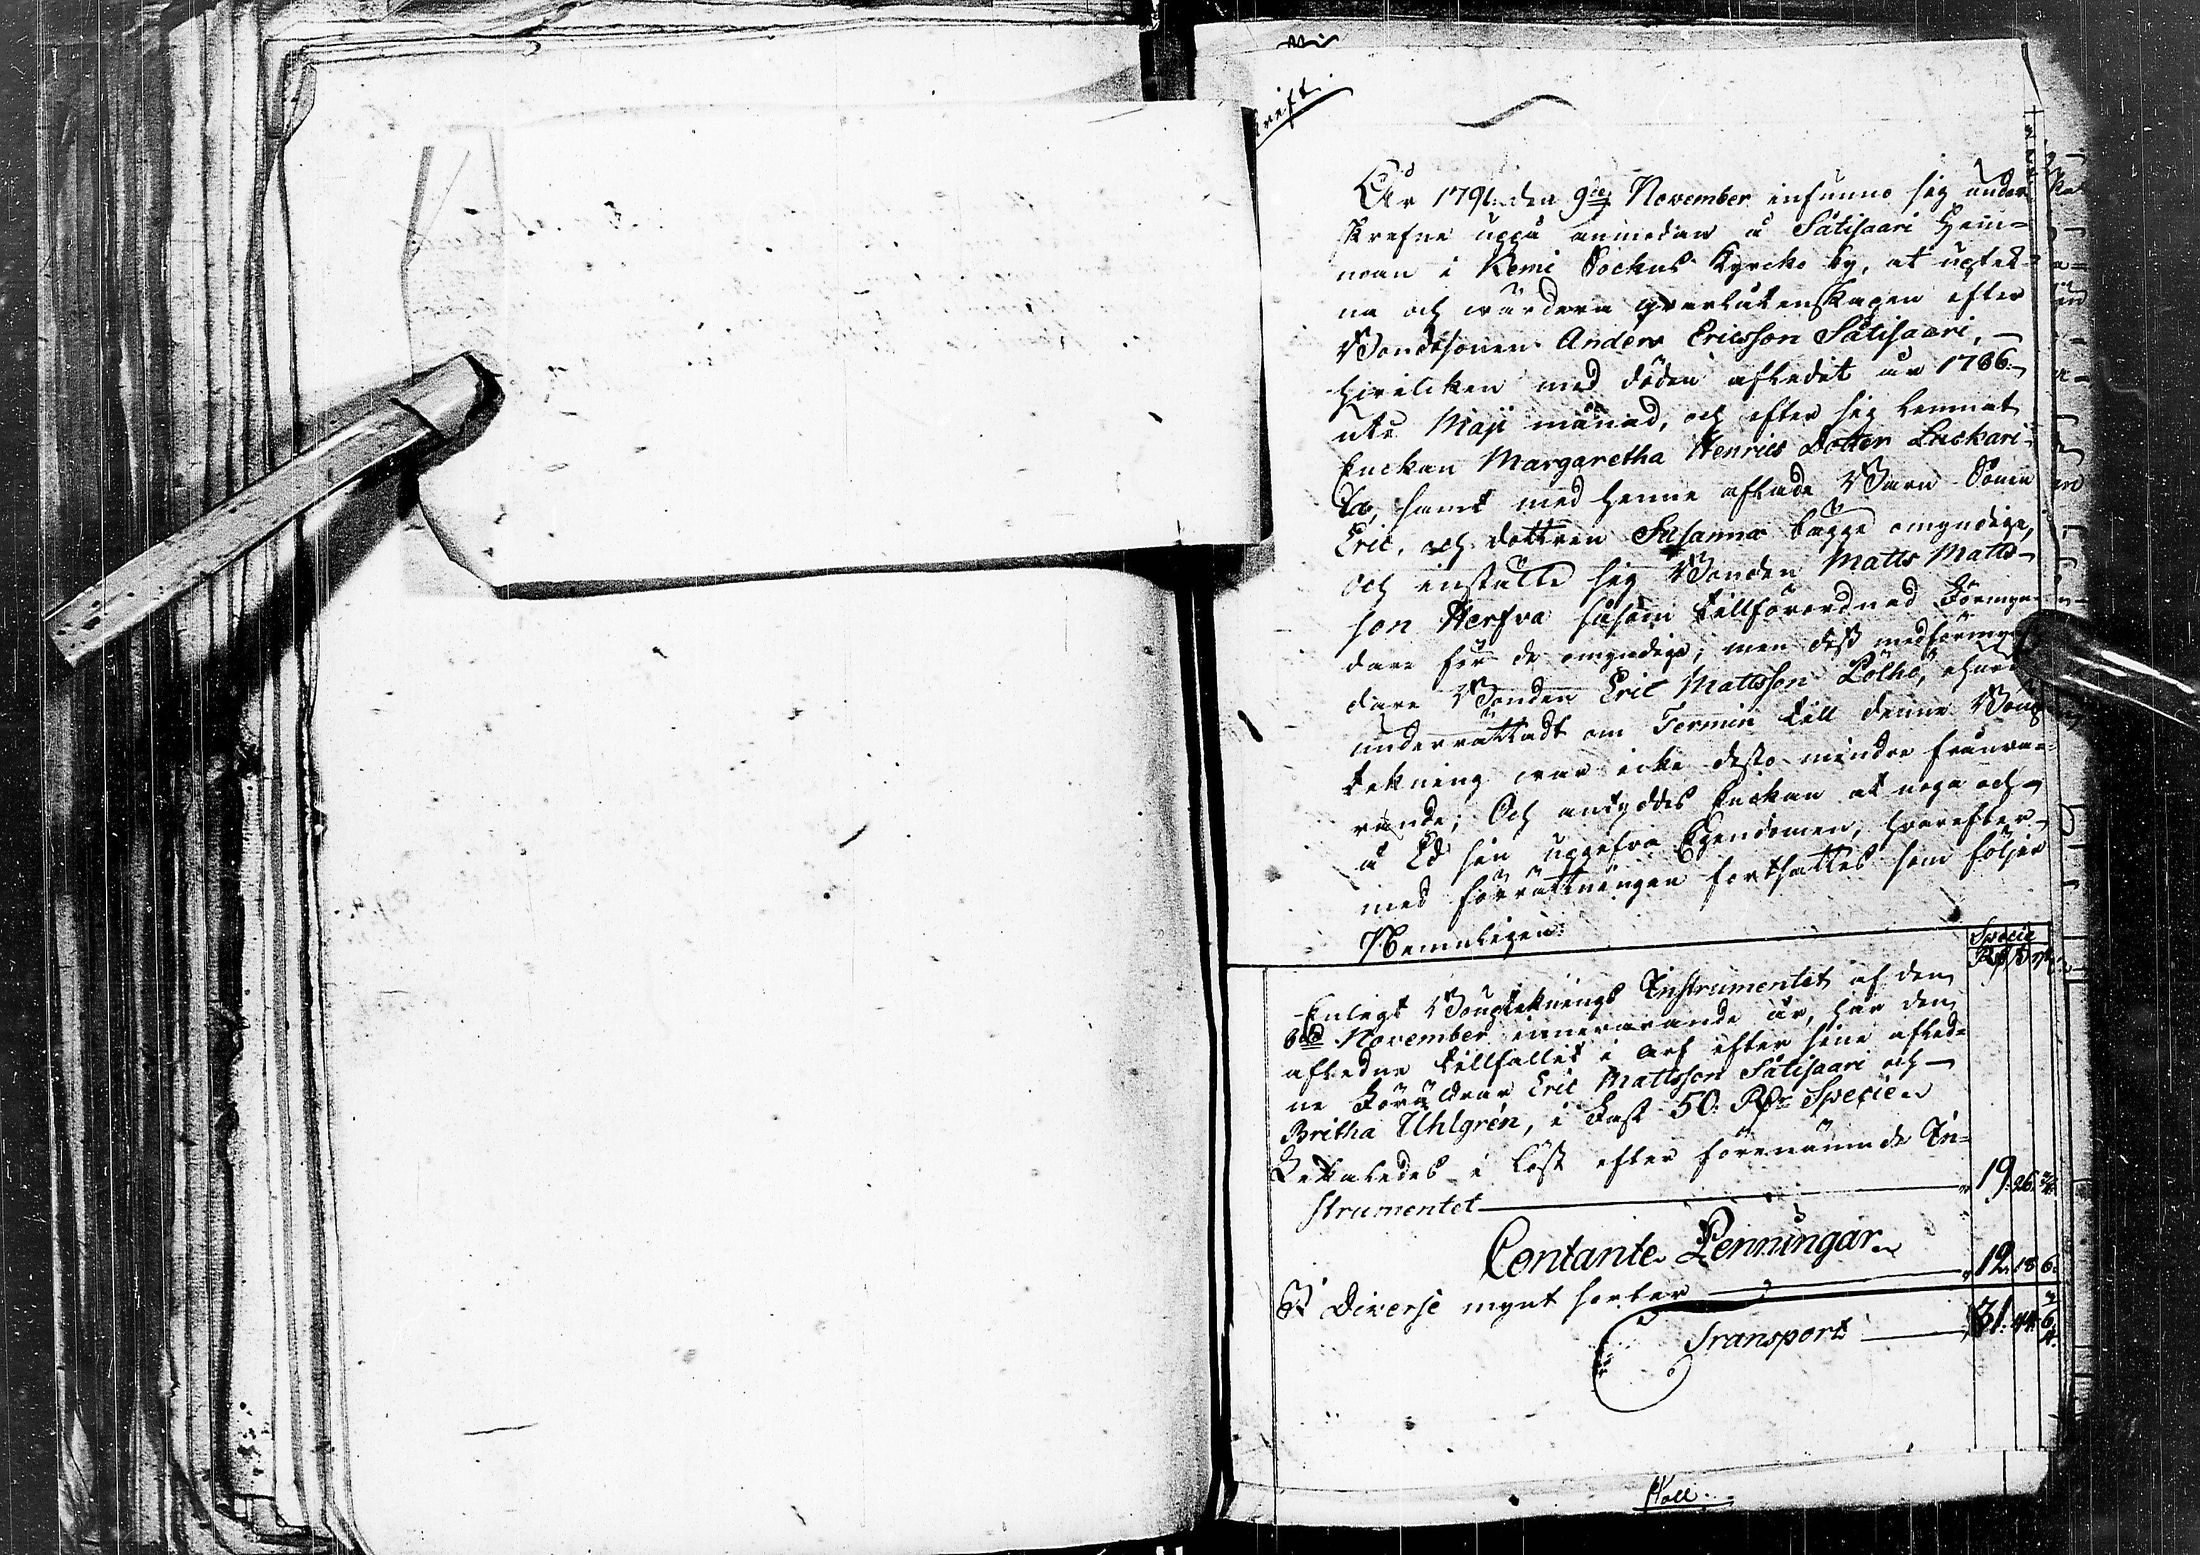 krift
År 1791 den 9de November infunno sig under
skrefne uppå anmodan å Sätisaari Hem=
man i Kemi Sockns Kyrcko by, at uptek=
na och wärdera qvarlåtenskapen efter
Bondesonen Anders Ericsson Sätisaari,
hvilcken med döden afledit år 1786
uti Maji månad, och efter sig lemnat
Enckan Margaretha Henrics Dotter Luckari
la, samt med henne aflade Barn Sonen
Eric, och dottren Susanna bägge omyndige,
Och instälte sig Bonden Matts Matts-
son Herfva såsom tillförordnad Förmyn-
dare för de omyndige; men dess medförmyn
dare Bonden Eric Mattsson Pölhö, ehuru
underrättadt om Termin till denne Boup
tekning war icke desto mindre frånwa=
rande; Och antyddes Enckan at noga och
å Ed sin uppgifva Egendomen, hvarefter
med förrättningen fortsattes som följer
Nemnligen:
Specie
Rdr ß
Enligt Bouptecknings Instrumentet af den
8de November innewarande år, har den
afledne tillfallit i arf efter sine afled=
ne Föräldrar Eric Mattsson Sätisaari och
Britha Uhlgrén, i Fast 50 Rdr Specie
Likaledes i löst efter förenämnde In=
strumentet 19. 26.
Contante Penningar
I Diverse mynt sorter 12. 18. 6.
Transport 31. 44. 6